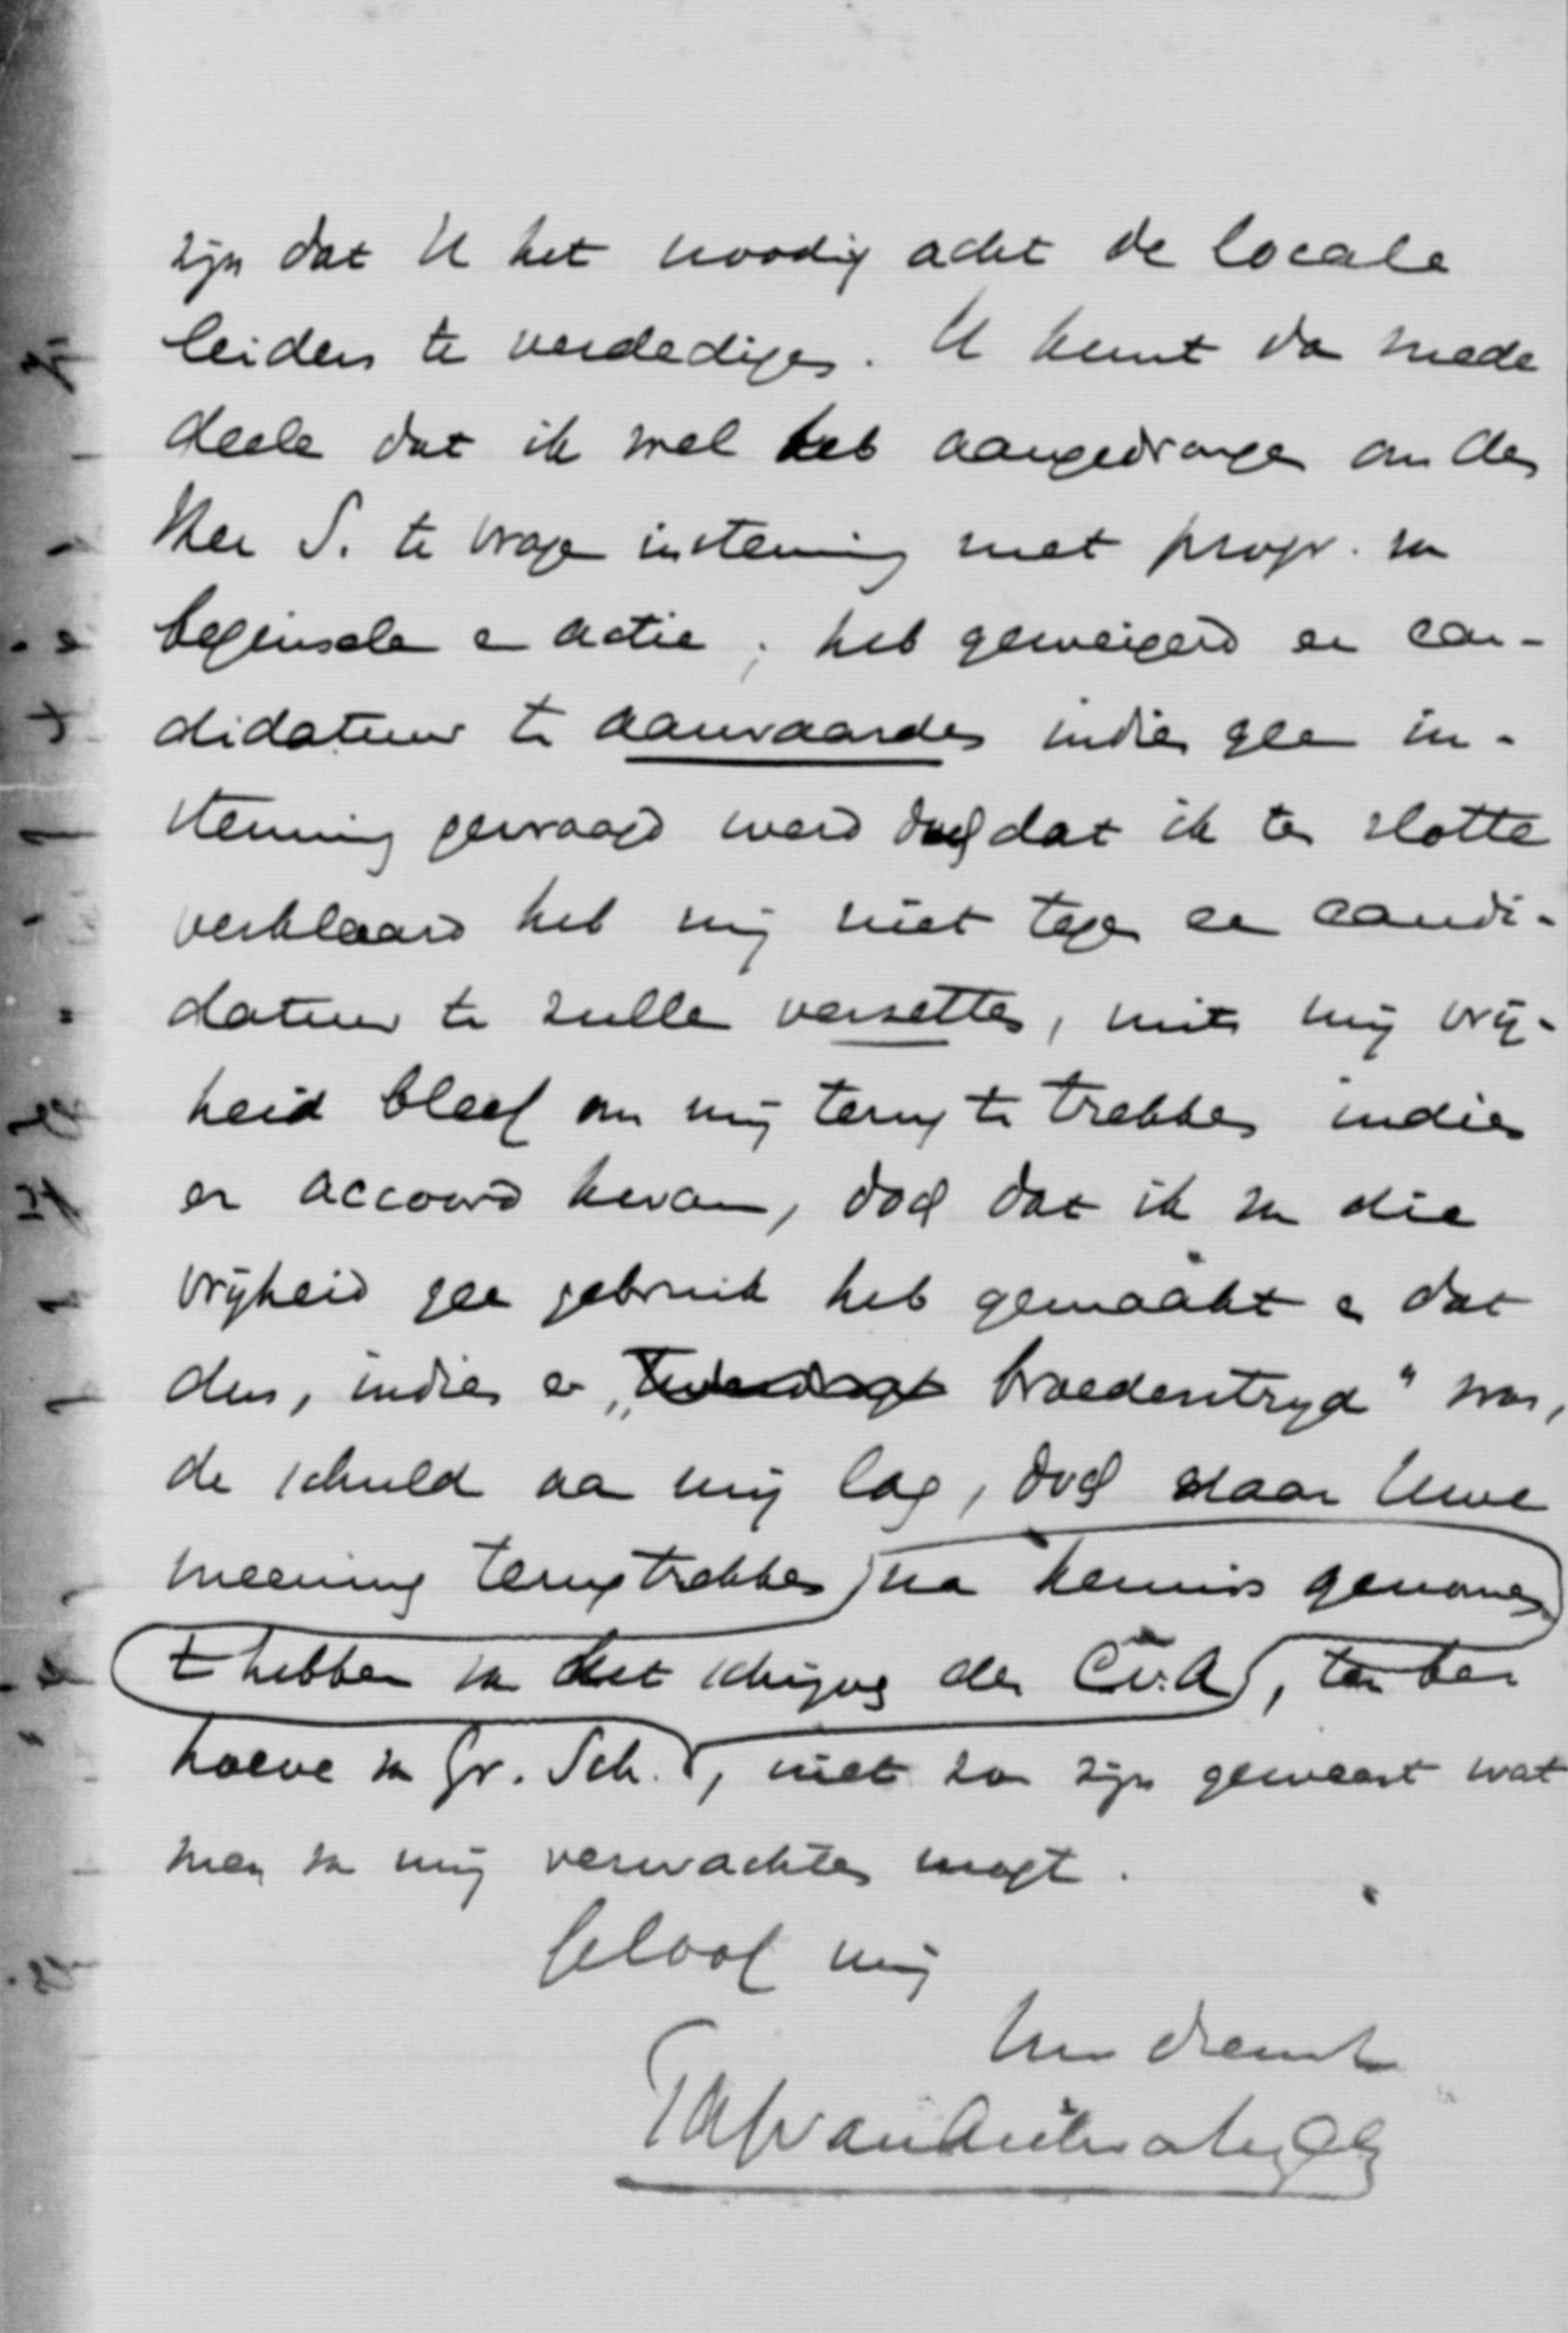 zijn dat U het noodig acht de locale
leiders te verdedigen. U kunt dan mede
deelen dat ik wel heb aangedrongen om den
Heer S. te vragen instemming met progr. van
beginselen en actie; heb geweigerd een can-
didatuur te aanvaarden indien geen in-
stemming gevraagd werd doch dat ik ten slotte
verklaard heb mij niet tegen een candi-
datuur te zullen verzetten, mits mij vrij-
heid bleef om mij terug te trekken indien
er accoord kwam, doch dat ik van die
vrijheid geen gebruik heb gemaakt en dat
dus, indien er „broederstryd" was,
de schuld aan mij lag, doch daar Uwe
meening terugtrekken na kennis genomen
te hebben van het schrijven der C.v.A, ten be
hoeve van Gr. Sch., niet zou zijn geweest wat
men van mij verwachten mogt.
Geloof mij
Uw dienstv